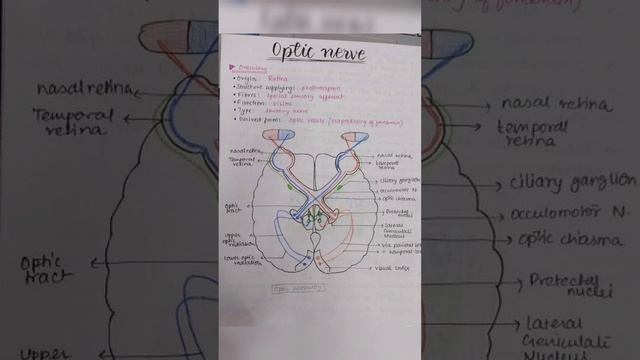 Optic nerve
Overview
• Origin : Retina
• Structure supplying : photoreceptors
• Fibres : special sensory afferent
• Function : vision
• Type : sensory nerve
• Derived from : optic vesicle (outpocketing of forebrain)
nasal retina
Temporal retina
nasal retina
temporal retina
ciliary ganglion
occulomotor N.
optic chiasma
optic tract
Pretectal nuclei
lateral Geniculate Nucleus
upper optic radiation
via parietal
temporal
lower optic radiation
visual cortex
optic pathway
nasal retina
Temporal retina
optic tract
upper
nasal retina
temporal retina
ciliary ganglion
occulomotor N.
optic chiasma
Pretectal nuclei
lateral
Geniculate
Nucleus